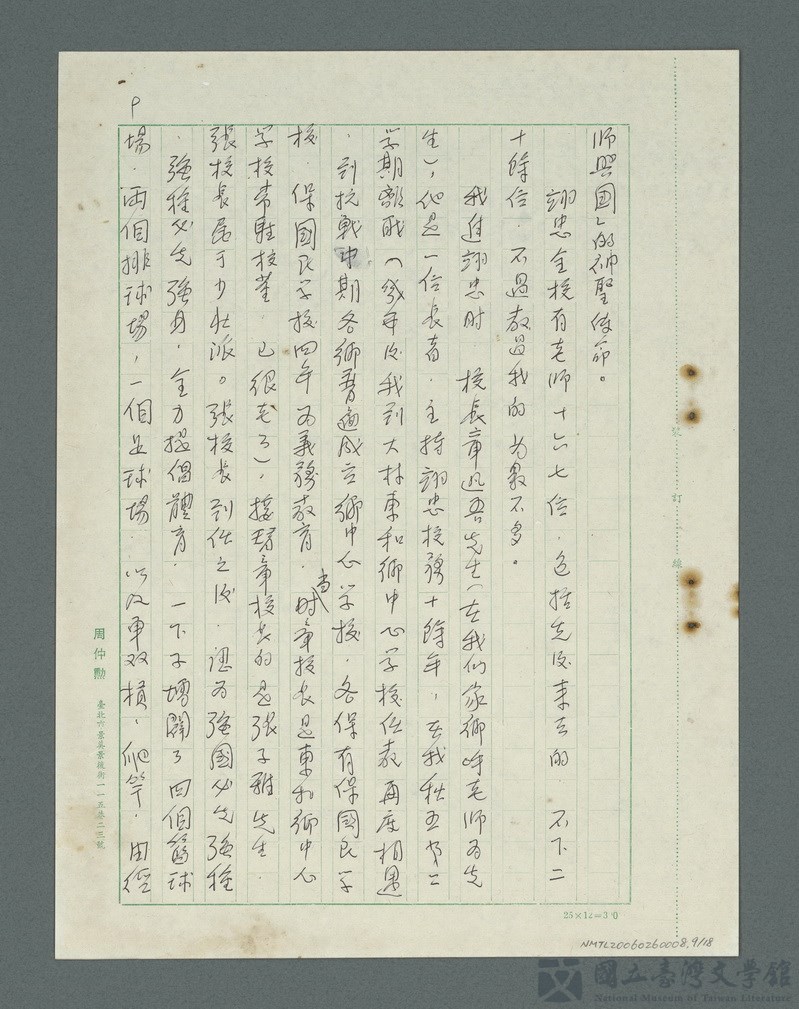 師興國」的神聖使命。
翊忠全校有老師十六七位．包括先後来去的 不下二
十餘位．不過教過我的為數不多。
我進翊忠时 校長章 吾先生（在我们家鄉呼老师为先
生），他是一位長者．主持翊忠校務十餘年，在我秋五第二
学期離职（幾年後我到大林東和鄉中心学校任教再度相遇
．到抗戰中期各鄉普遍成立鄉中心学校．各保有保國民学
校．保國民学校四年为義務教育．当时章校长是東和鄉中心
学校常駐校董．已很老了），接替章校长的是张子雅先生．
張校長屬于少壮派。張校长到任之後．認为強國必先強種
．強種必先強身．全力提倡體育．一下子增闢了四個籃球
場．兩個排球場，一個足球場．以及单双槓，爬竿．田徑
9
裝訂線
周仲勳 臺北六張吳興街一一五巷二三號
25×12=300
NMTL20060260008.9/18
國立臺灣文學館
National Museum of Taiwan Literature